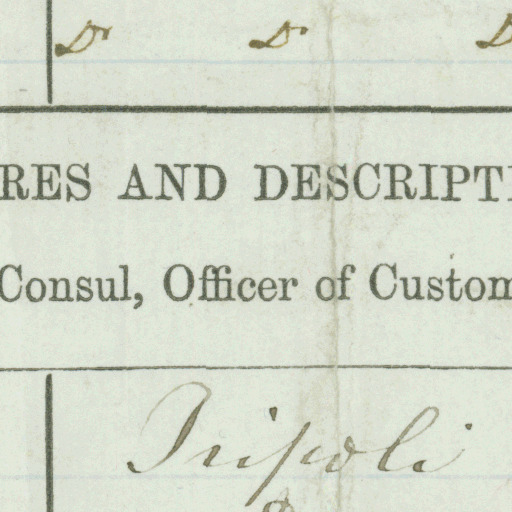 Dr Dr D
RES AND DESCRIPTI
Consul, Officer of Custom
Tripoli